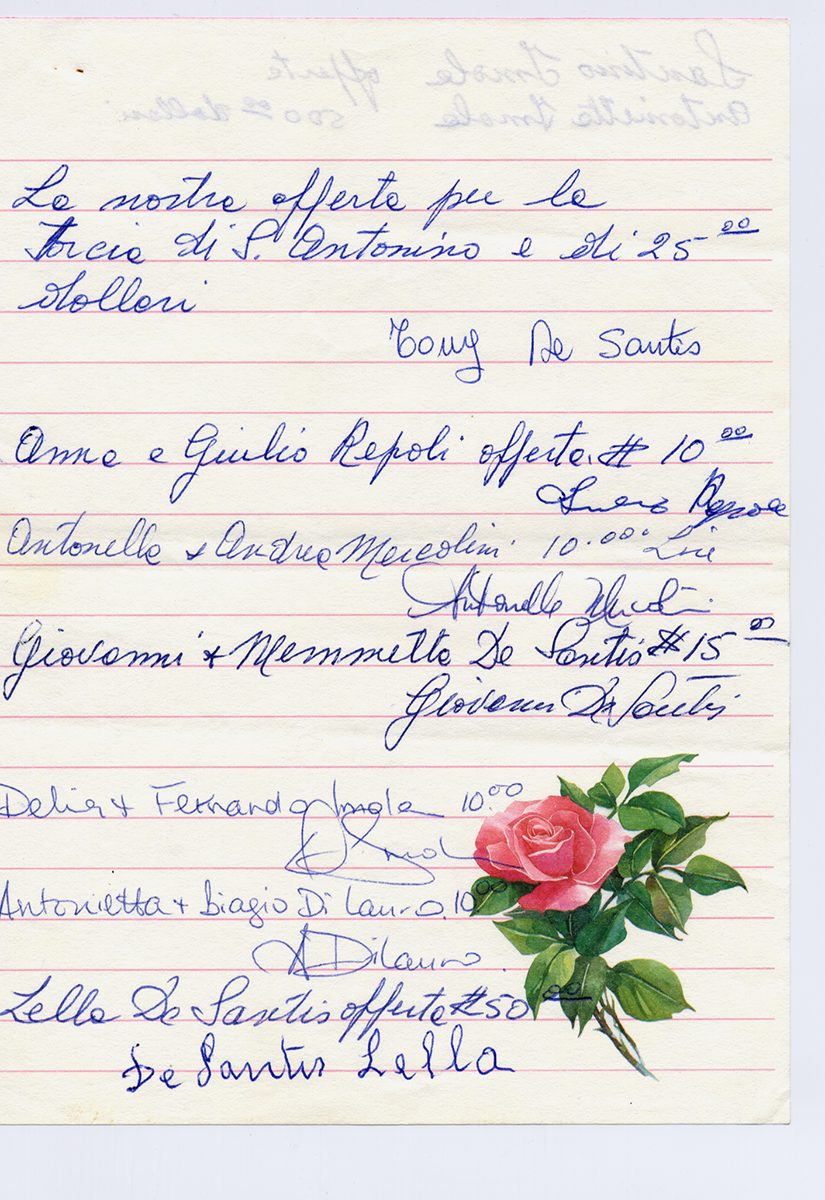 Santino Imola offerte
Antonietta Imola 500 00 dollari
La nostra offerta per la
Torcia di S. Antonino e di 25 00
dollari
Tony De Santis
Anna e Giulio Repoli offerta # 10 00
Antonella + Andrea Mercolini 10.00 Lire
Antonella
Giovanni + Memmetta De Santis # 15 00
Giovanni De Santis
Delia + Fernando Imola 10.00
Antonietta + Biagio Di Lauro 10.00
A DiLauro
Lella De Santis offerta # 50 00
De Santis Lella